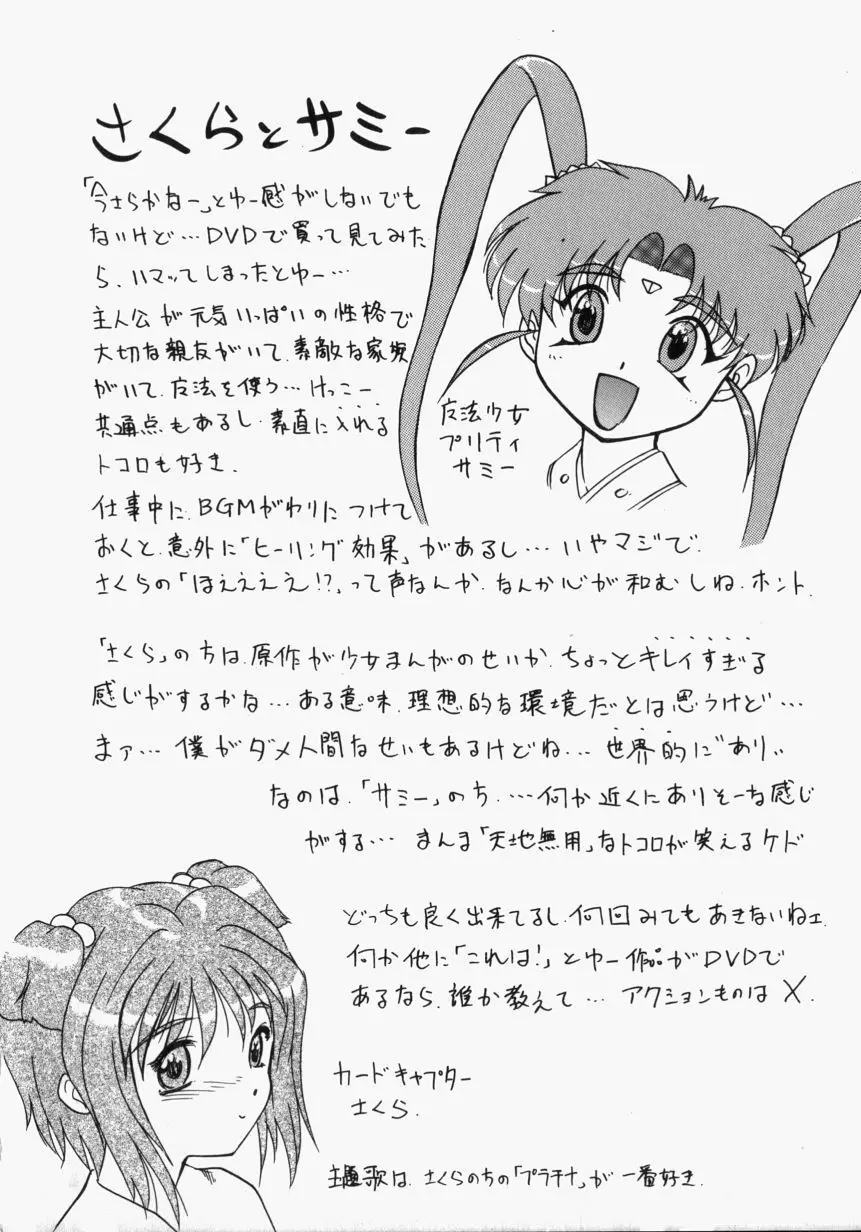 さくらとサミー
「今さらかなー」とゆー感がしないでも
ないけど…DVDで買って見てみた
ら、ハマッてしまったとゆー…
主人公が元気いっぱいの性格で
大切な親友がいて、素敵な家族
がいて、魔法を使う…けっこー
共通点もあるし、素直に入れる
トコロも好き。
仕事中に、BGMがわりにつけて
おくと、意外に「ヒーリング効果」があるし…いやマジで。
さくらの「ほええええ!?」って声なんか、なんか心が和むしね、ホント。
魔法少女
プリティ
サミー
「さくら」の方は、原作が少女まんがのせいか、ちょっとキレイすぎる
感じがするかな…ある意味、理想的な環境だとは思うけど…
まァ…僕がダメ人間なせいもあるけどね…世界的に"あり"
なのは、「サミー」のち、…何か近くにありそーな感じ
がする…まんま「天地無用」なトコロが笑えるケド
どっちも良く出来てるし、何回みてもあきないねェ
何か他に「これは!」とゆー作品がDVDで
あるなら、誰か教えて…アクションものは×。
カードキャプター
さくら。
主題歌は、さくらのちの「プラチナ」が一番好き。